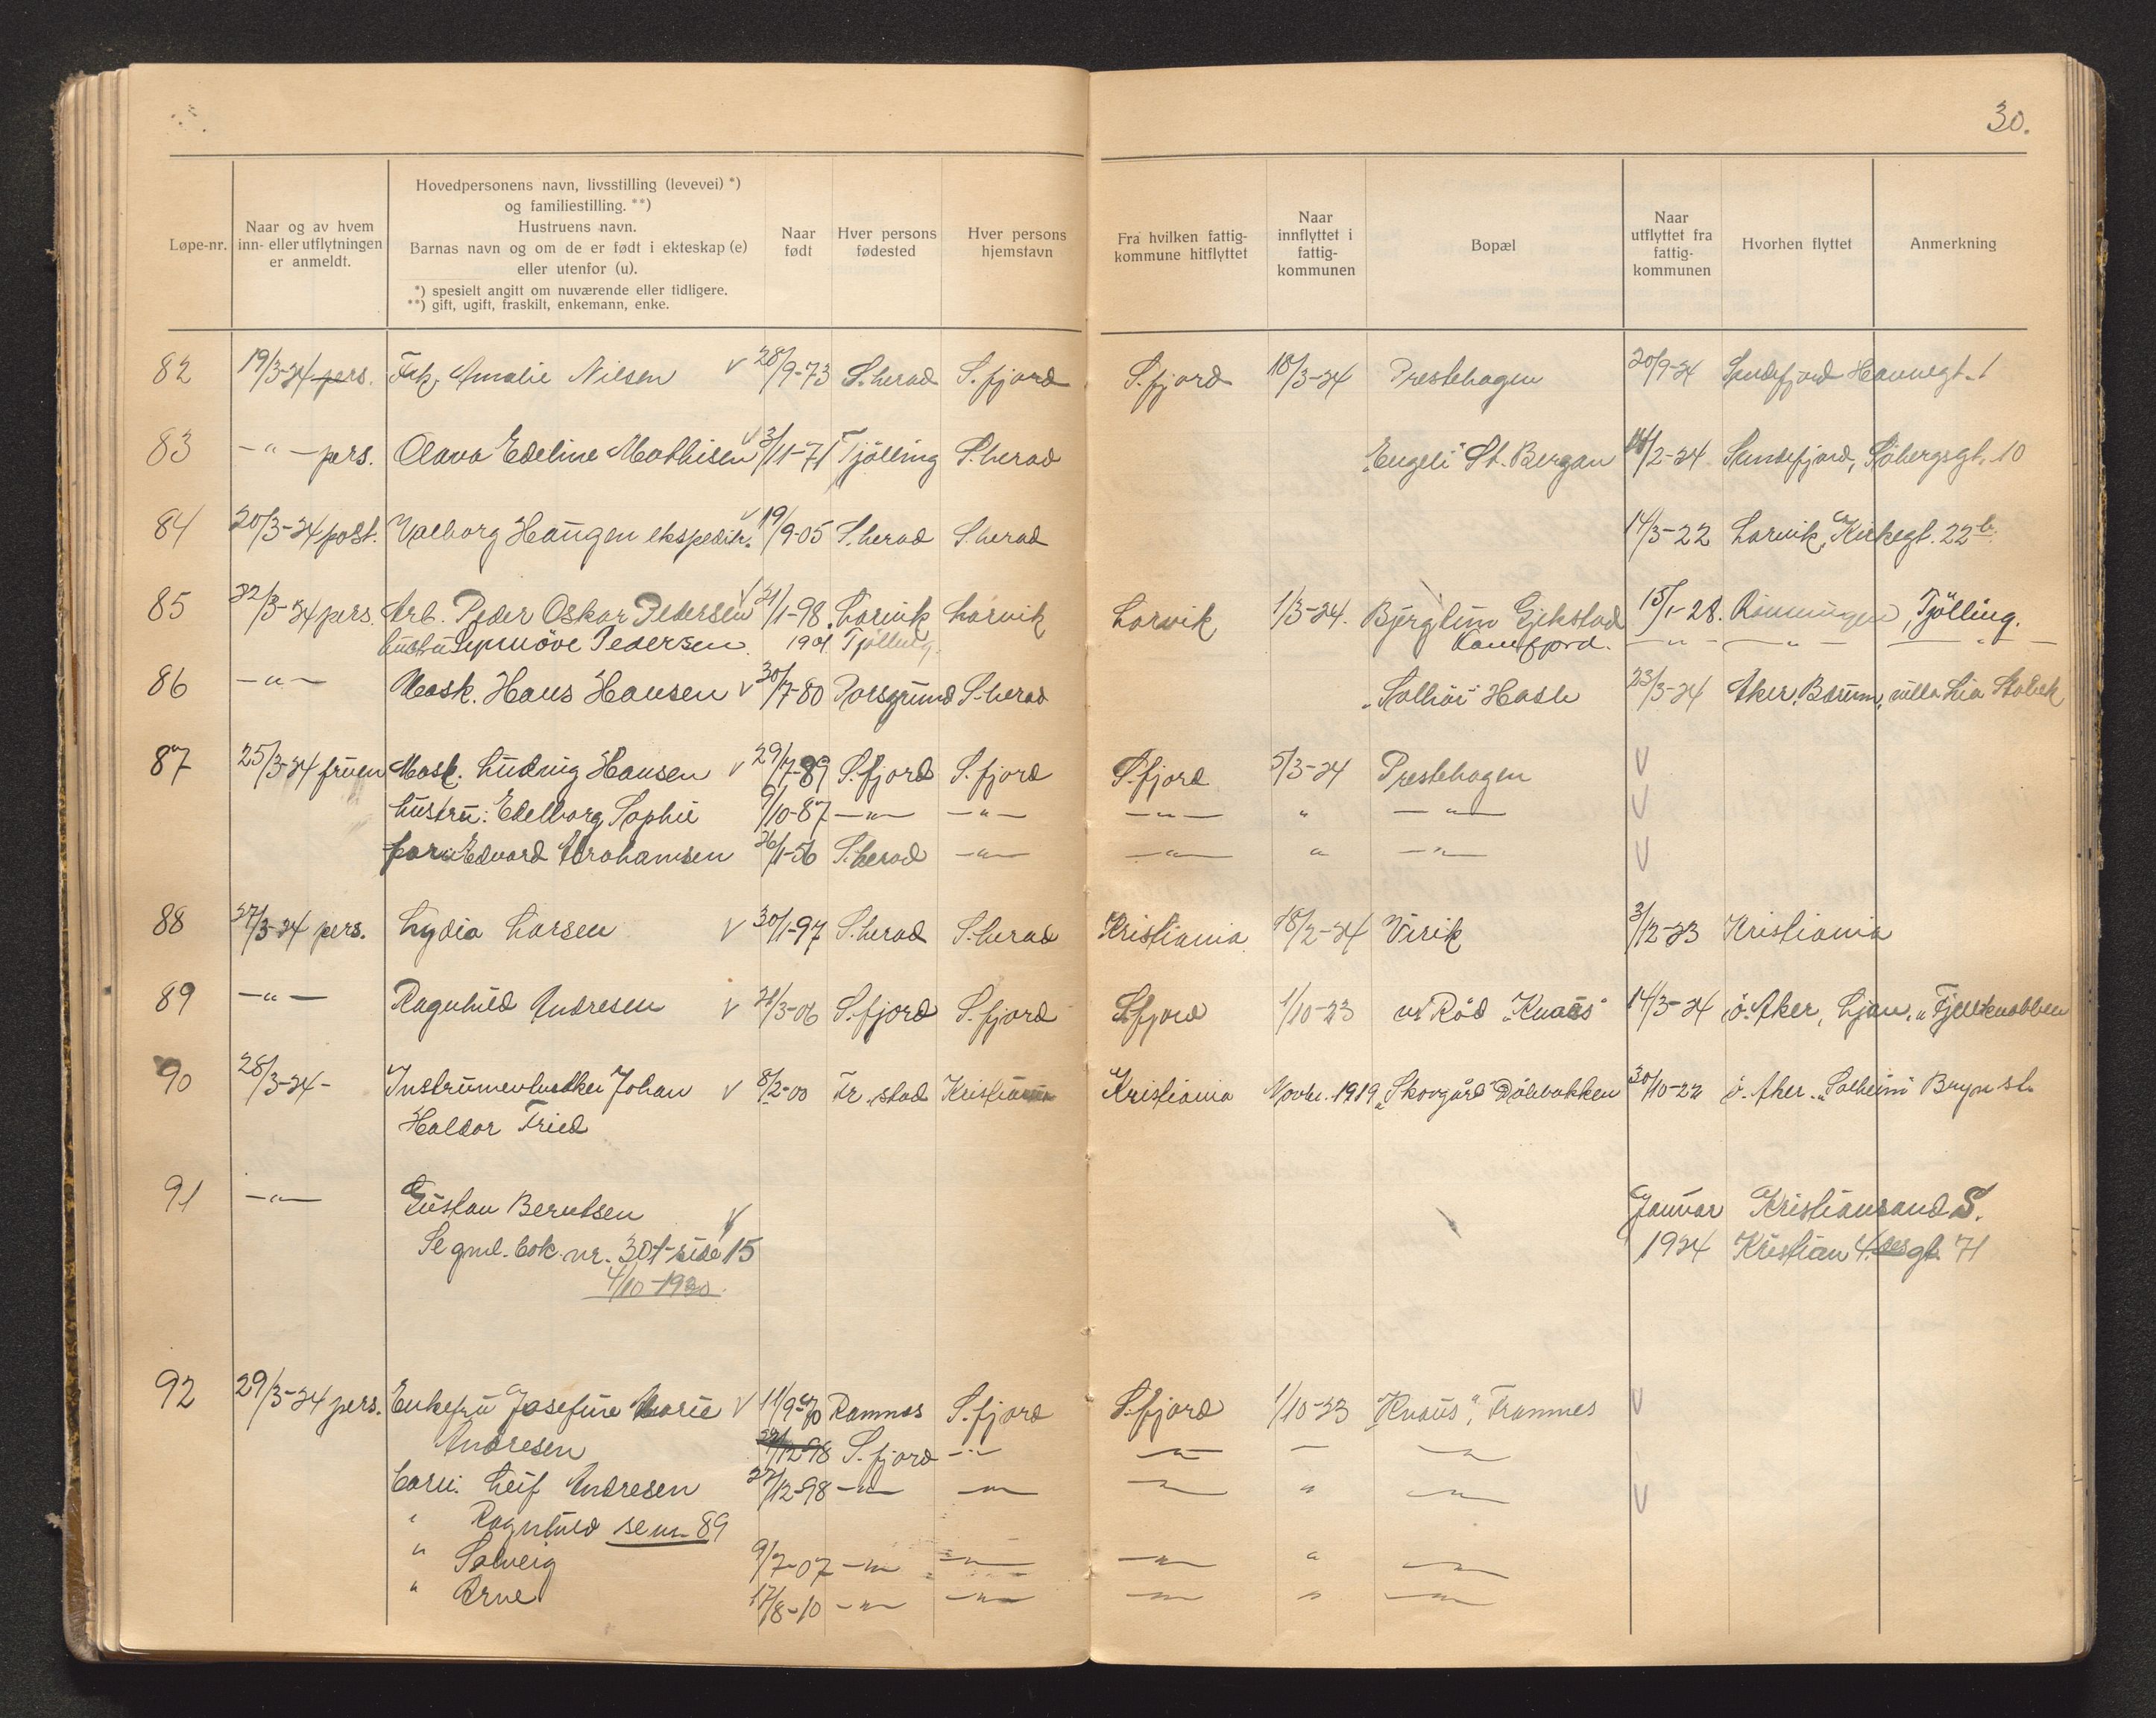 30.
Løpe-nr.
Naar og av hvem
inn- eller utflytningen
er anmeldt.
Hovedpersonens navn, livsstilling (levevei) *)
og familiestilling. **)
Hustruens navn.
Barnas navn og om de er født i ekteskap (e)
eller utenfor (u).
*) spesielt angitt om nuværende eller tidligere.
**) gift, ugift, fraskilt, enkemann, enke.
Naar
født
Hver persons
fødested
Hver persons
hjemstavn
Fra hvilken fattig-
kommune hitflyttet
Naar
innflyttet i
fattig-
kommunen
Bopæl
Naar
utflyttet fra
fattig-
kommunen
Hvorhen flyttet
Anmerkning
82 19/3-24 pers. Frk. Amalie Nilsen v 28/9-73 S.herad S.fjord S.fjord 18/3-24 Prestehagen 20/9-24 Sandefjord Havnegt. 1
83 -"- pers. Olava Edeline Mathisen v 3/11-71 Tjölling S.herad "Engeli" St. Bergan 14/2-24 Sandefjord, Söbergsgt. 10
84 20/3-24 post. Valborg Haugen ekspeditr. v 19/9-05 S.herad S.herad 14/3-22 Larvik, Kirkegt. 22 b.
85 22/3-24 pers. Arb. Peder Oskar Pedersen v 21/1-98 Larvik Larvik Larvik 1/3-24. Bjerglim Gjekstad 15/1-28. Rönningen, Tjölling.
hustru Synnöve Pedersen. 1901 Tjölling. Kamfjord. -"- -"- -"-
86 -"- Mask. Hans Hansen v 30/7-80 Porsgrund S.herad "Solhöi" Hasle 23/3-24 Aker, Bærum, villa Lia Stabek
87 25/3-24 fruen Mask. Ludvig Hansen v 29/7-89 S.fjord S.fjord S.fjord 5/3-24 Prestehagen V
hustru: Edelborg Sophie 9/10-87 -"- -"- -"- " -"- V
far: Edvard Abrahamsen 26/1-56 S.herad -"- -"- " -"- V
88 27/3-24 pers. Lydia Larsen v 30/1-97 S.herad S.herad Kristiania 18/2-24 Virik 3/12-23 Kristiania
89 -"- Ragnhild Andresen v 21/3-06 S.fjord S.fjord S.fjord 1/10-23 Röd "Knaus" 14/3-24 ö. Aker, Ljan, "Fjellknabben
90 28/3-24 - Instrumentmaker Johan v 8/2-00 Fr.stad Kristiania Kristiania Novbr. 1919 "Skovgård" Dölebakken 30/10-22 ö. Aker. "Solheim" Bryn st.
Haldor Fried
91 -"- Gustav Berntsen v Januar Kristiansand S.
Se gml. bok. nr. 301 - side 15 1924 Kristian 4.des gt. 71
4/10-1930.
92 29/3-24 pers. Enkefru Josefine Marie v 11/9-70 Ramnes S.fjord S.fjord 1/10-23 "Knaus", Framnes V
Andresen 27/12-98 S.fjord -"- -"- - -"-
barn: Leif Andresen 27/12-98 -"- -"- -"- " -"- V
" Ragnhild se nr. 89
" Solveig 9/7-07 -"- -"- -"- " -"-
" Arne 17/8-10 -"- -"- -"- " -"-